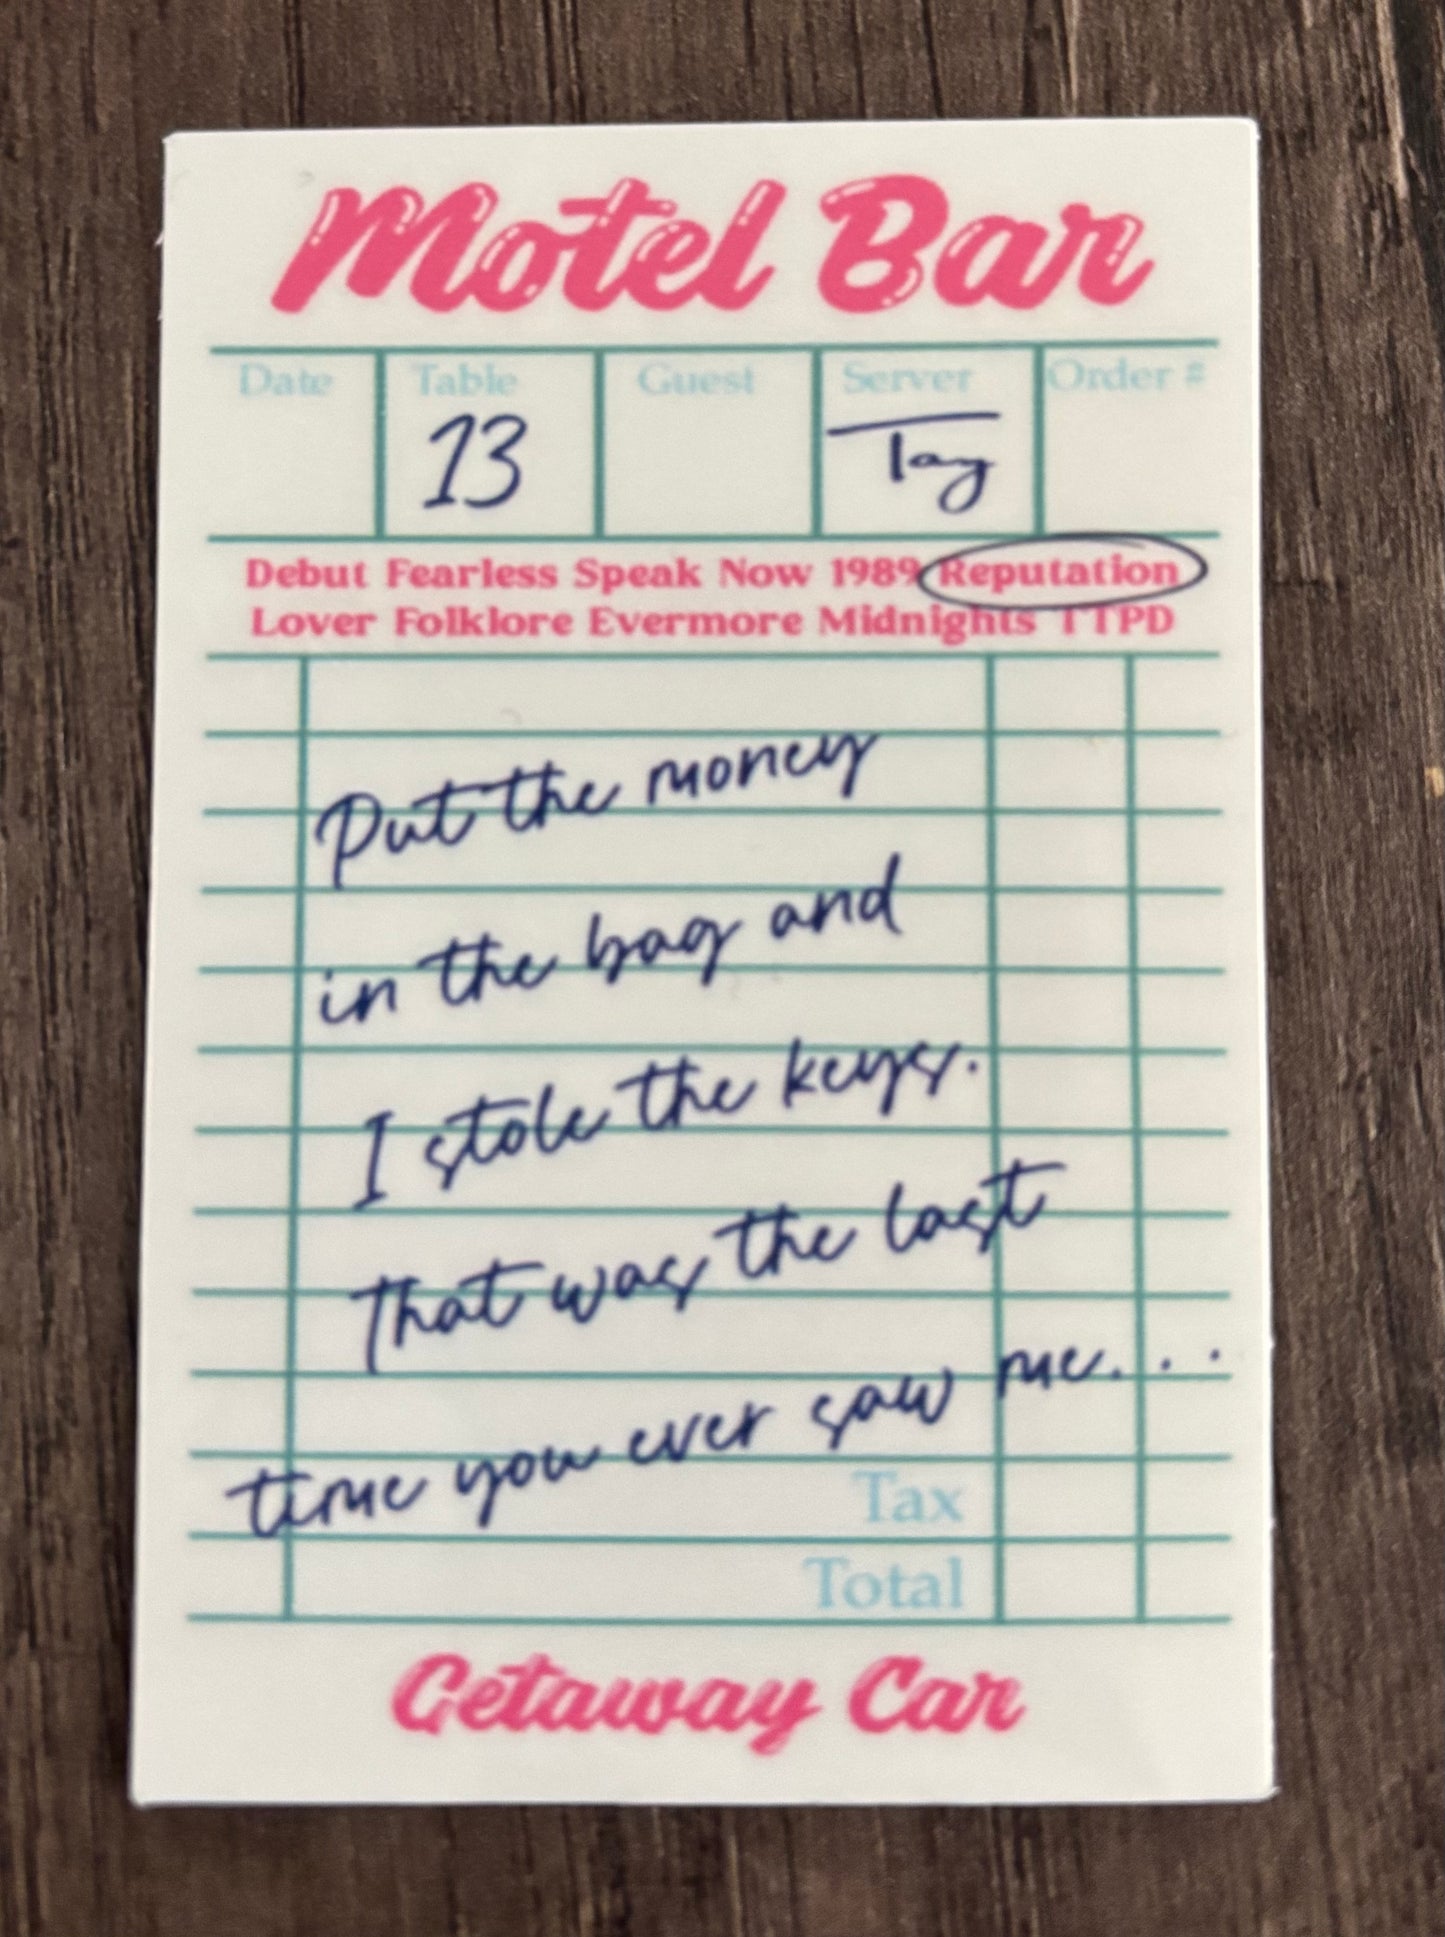 Motel Bar
Date Table Guest Server Order #
13 Tay
Debut Fearless Speak Now 1989 Reputation
Lover Folklore Evermore Midnights TTPD
Put the money
in the bag and
I stole the keys.
That was the last
time you ever saw me...
Tax
Total
Getaway Car